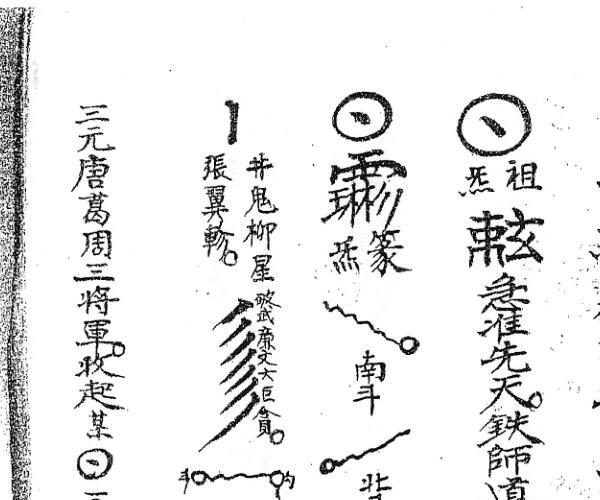 祖炁
急准先天鉄師道
篆炁
南斗
井鬼柳星
張翼軫
破武廉文巨貪
三元唐葛周三将軍收起某